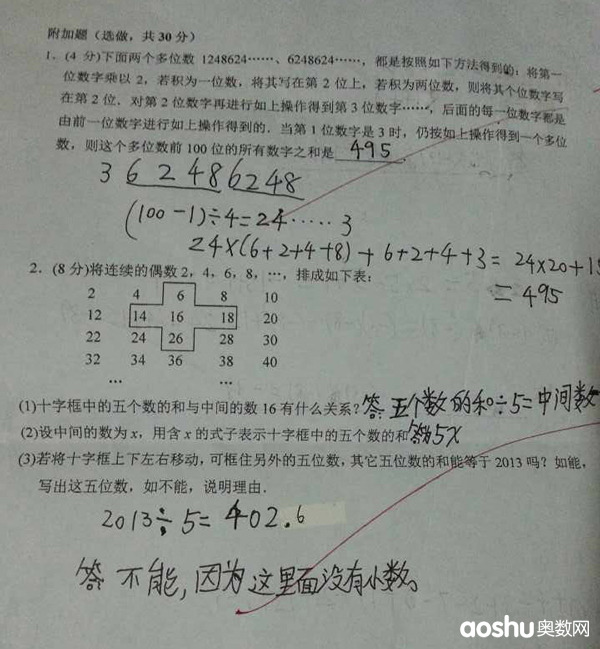 附加题（选做，共30分）
1．(4 分)下面两个多位数 1248624……、6248624……，都是按照如下方法得到的：将第一
位数字乘以 2，若积为一位数，将其写在第 2 位上，若积为两位数，则将其个位数字写
在第 2 位．对第 2 位数字再进行如上操作得到第 3 位数字……，后面的每一位数字都是
由前一位数字进行如上操作得到的．当第 1 位数字是 3 时，仍按如上操作得到一个多位
数，则这个多位数前 100 位的所有数字之和是 495 .
3 6 2 4 8 6 2 4 8
(100－1)÷4＝24……3
24×(6+2+4+8)+6+2+4+3＝24×20+15
＝495
2．(8 分)将连续的偶数 2，4，6，8，…，排成如下表：
2 4 6 8 10
12 14 16 18 20
22 24 26 28 30
32 34 36 38 40
… …
(1)十字框中的五个数的和与中间的数 16 有什么关系？答 五个数的和÷5＝中间数
(2)设中间的数为 x，用含 x 的式子表示十字框中的五个数的和 答为5X
(3)若将十字框上下左右移动，可框住另外的五位数，其它五位数的和能等于 2013 吗？如能，
写出这五位数，如不能，说明理由．
2013÷5＝402.6
答 不能，因为这里面没有小数。
aoshu奥数网